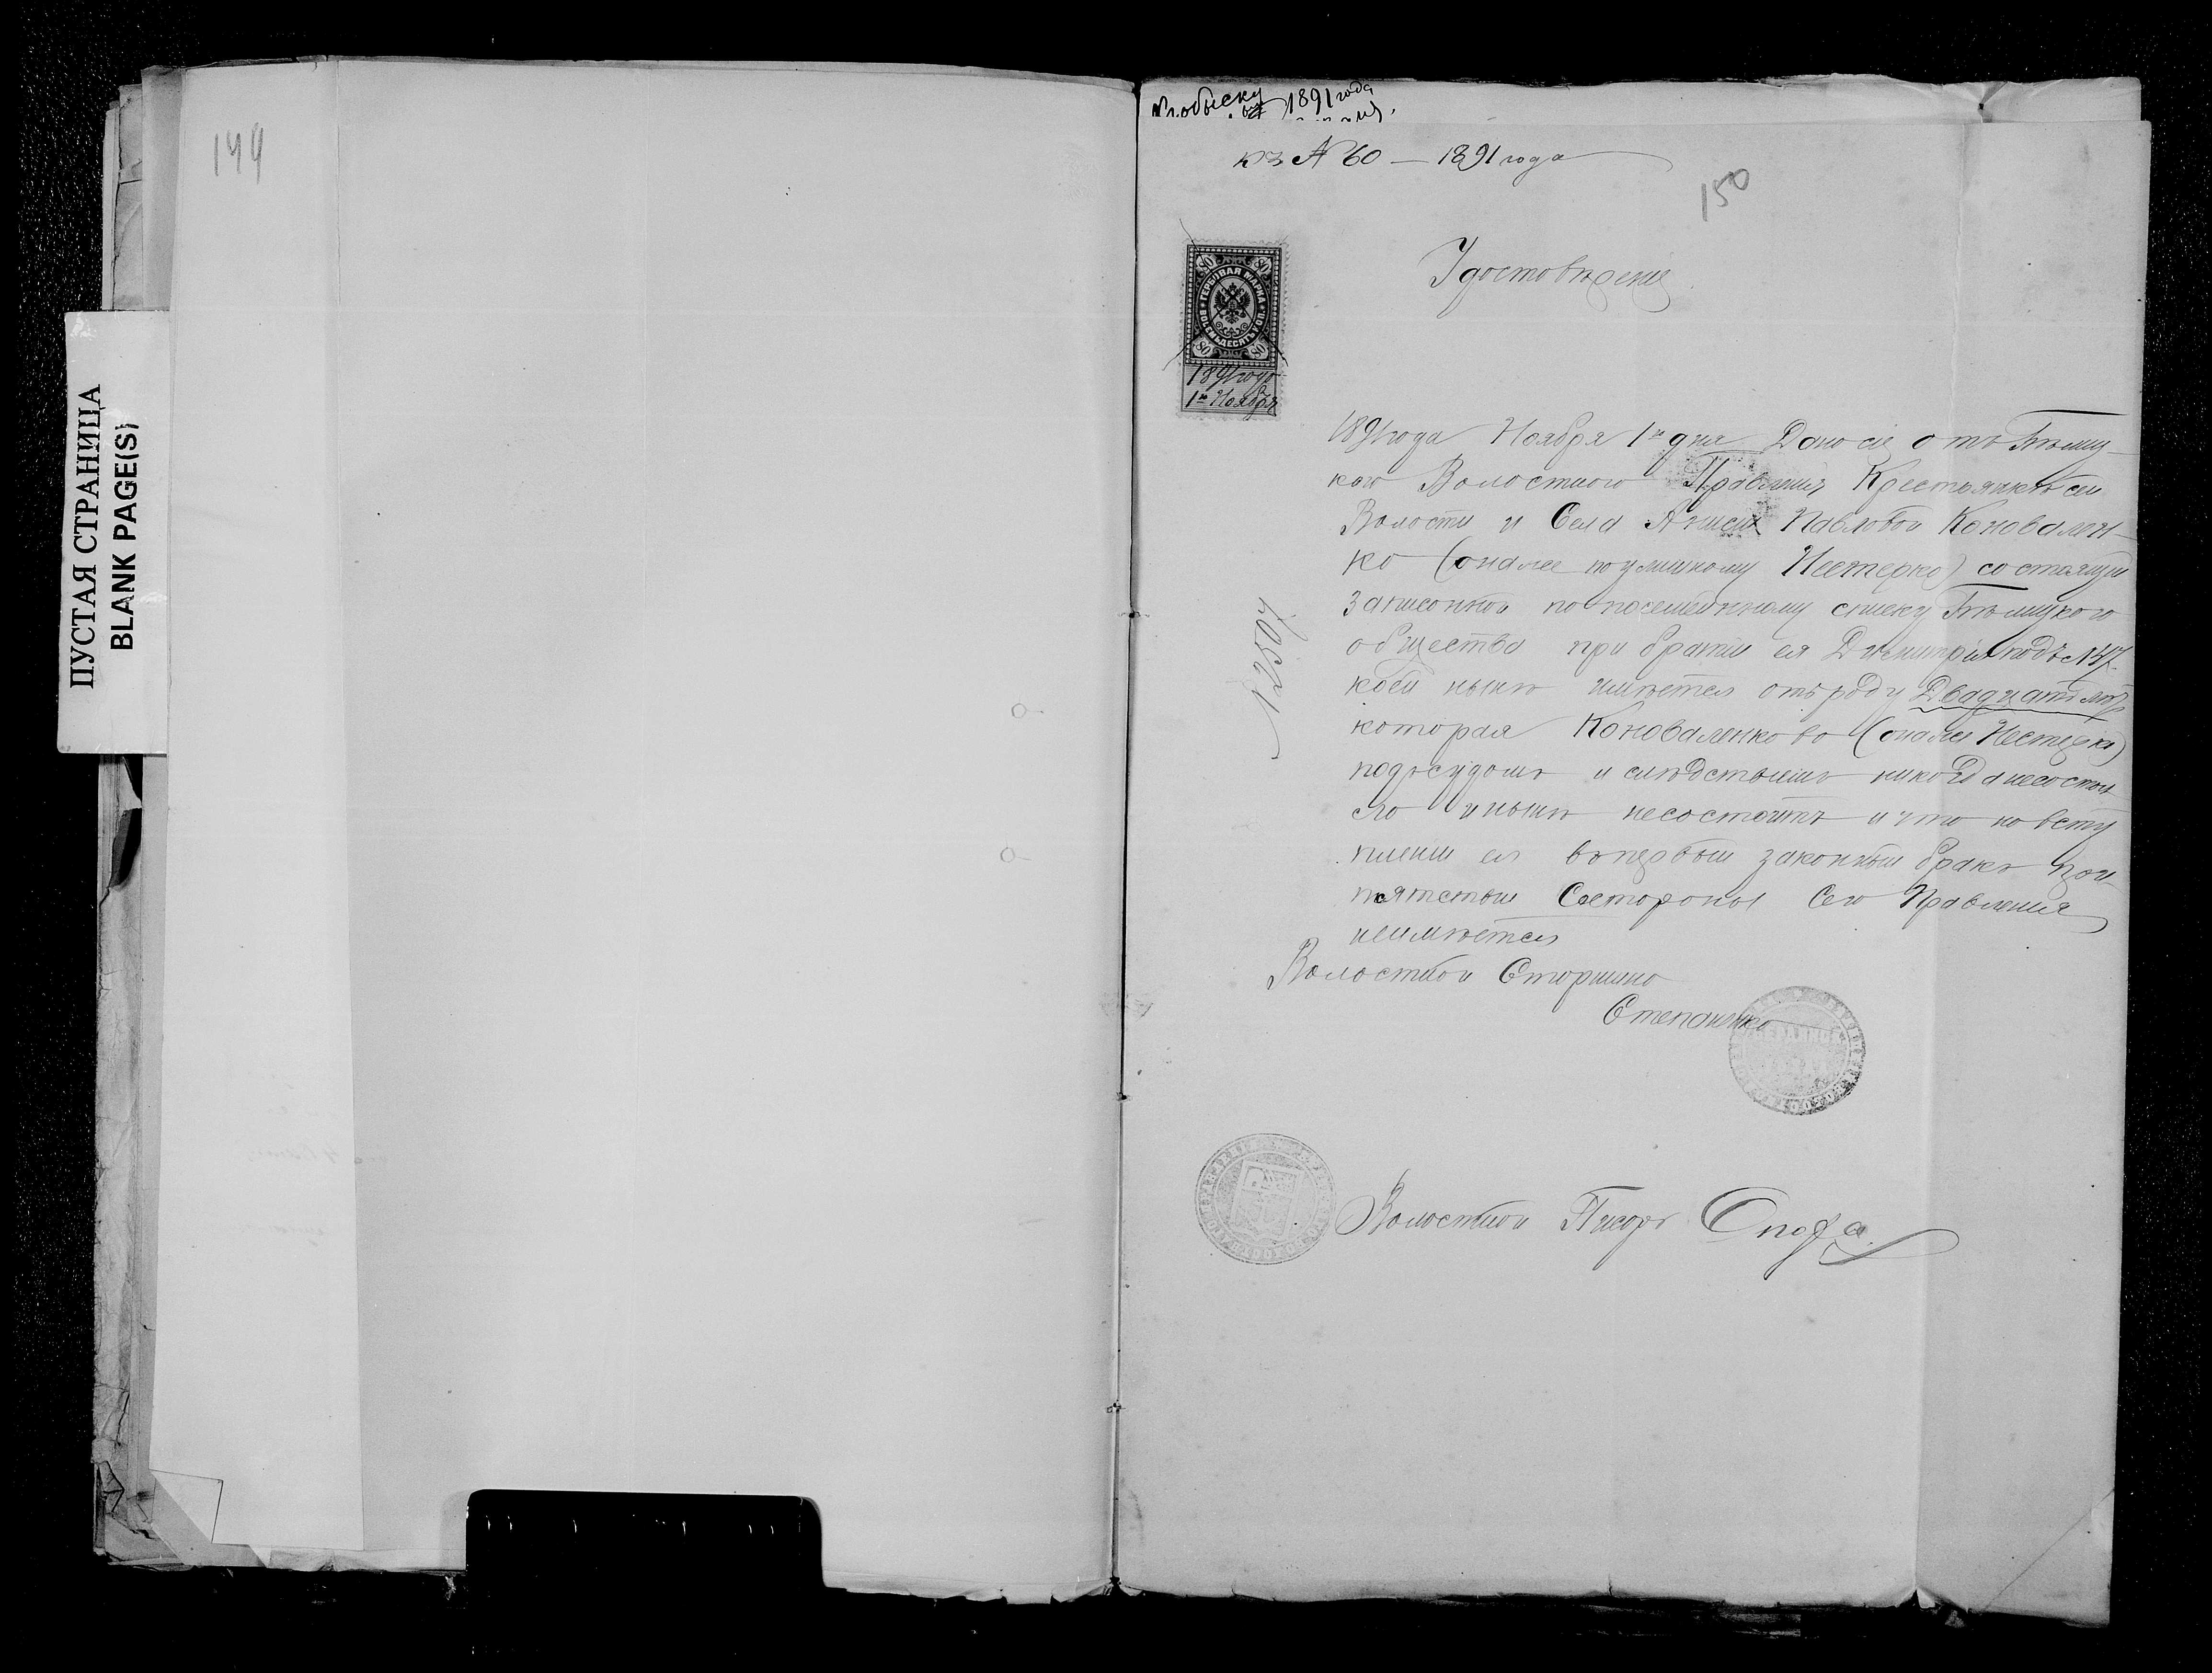 149
ПУСТАЯ СТРАНИЦА
BLANK PAGE(S)
1891 года
къ № 60 — 1891 года
150
Удостовѣреніе
80 80
ГЕРБОВАЯ МАРКА
ВОСЕМЬДЕСЯТЪ КОП.
80 80
1891 года
1го Ноября
1891 года Ноября 1го дня Дано сіе отъ
Волостного Правленія Крестьянкѣ сей
Волости и Села Анисіи Павловой Коновален-
ко (она же по уличному Нестерко) состоящей
Записанной по посемейному списку
общества при братѣ ея Димитріи подъ №47
коей нынѣ имѣется отъ роду Двадцать лѣтъ
которая Коноваленкова (она же Нестерко)
подъ судомъ и слѣдствіемъ никогда не состоя
ла и нынѣ не состоитъ и что ко всту
пленію ея въ первый законный бракъ преп
пятствій Со стороны Сего Правленія
не имѣется
Волостной Старшина
Степаненко
Волостной Писарь